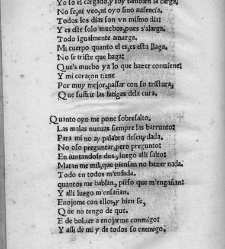 Yo lo el cargado, y soy tambien la carga,
No ni veo, ni oyo sino ausencia,
Todos los dias son vn mismo dia:
Y es este solo muchos, pues s'alarga,
Todo igualmente amarga.
Mi cuerpo quanto el es, es esta llaga,
No se triste que haga:
Que's mucho ya lo que hazer conuiene:
Y mi coraçon tiene
Por muy mejor, passar con su tristura,
Que suffrir las fatigas dela cura.
Quanto oyo me pone sobresalto,
Las malas nueuas siempre las barrunto:
Para mi no ay palabra dessseydada,
No oso preguntar, pero pregunto:
En juntandose dos, luego alli salto:
Matan me mil, que piensan no hazer nada,
Todo en todos m'enfada.
quantos me hablan, piéso que m'engañan:
Y alli luego m'ensañan.
Enojome con ellos, y bien se,
Que no tengo de que.
E de boluer a enojarme conmigo?
Y assi de mi y de todos so enemigo,